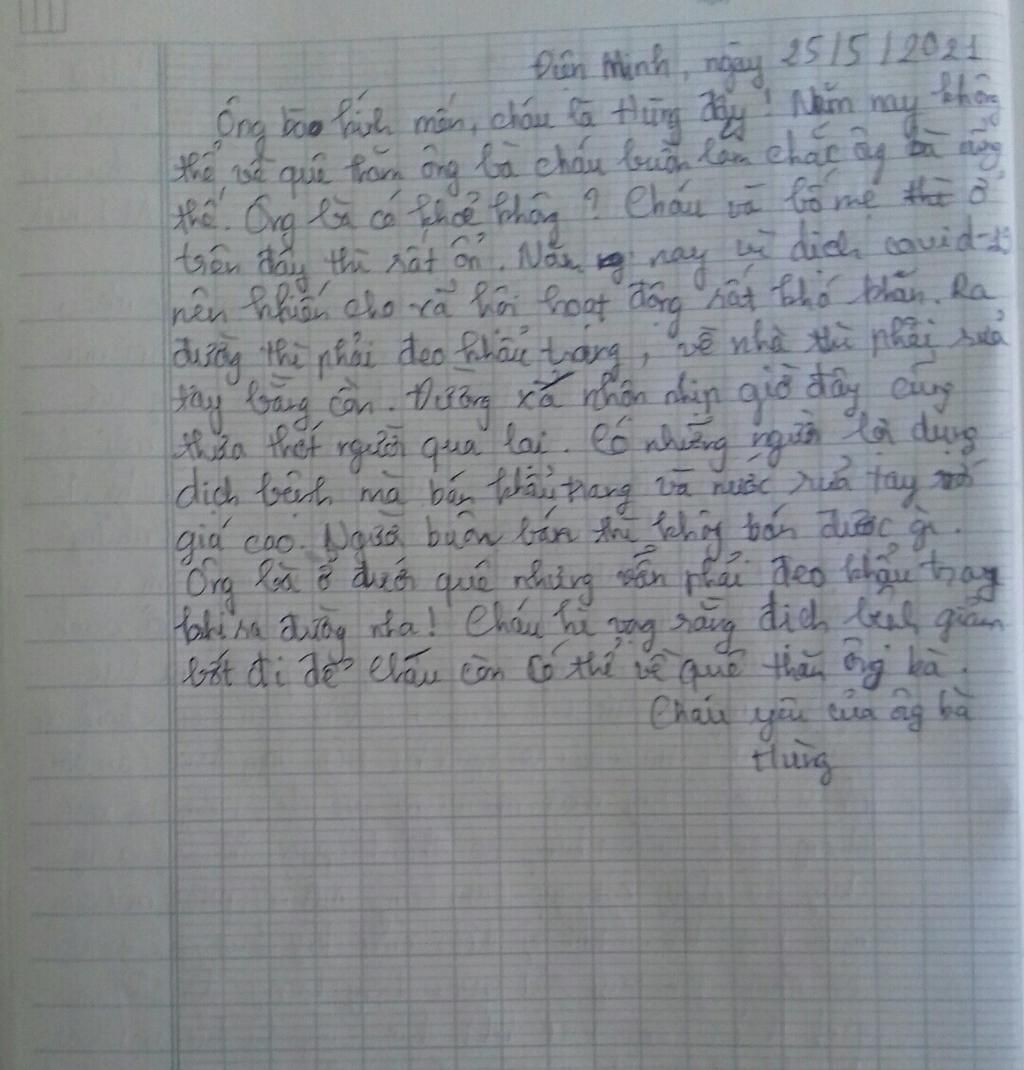 Điện Minh, ngày 25/5/2021
Ông bà kính mến, cháu là Hùng đây! Năm nay không
thể về quê thăm ông bà cháu buồn lắm chắc ôg bà cũng
thế. Ông bà có khoẻ không? Cháu và bố mẹ ở
trên đây thì rất ổn. Năm nay vì dịch covid-19
nên khiến cho xã hội hoạt động rất khó khăn. Ra
đường thì phải đeo khẩu trang, về nhà thì phải rửa
tay bằng cồn. Đường xá nhộn nhịp giờ đây cũng
thưa thớt người qua lại. Có những người lợi dụng
dịch bệnh mà bán khẩu trang và nước rửa tay
giá cao. Người buôn bán thì không bán được gì.
Ông bà ở dưới quê nhưng vẫn phải đeo khẩu trang
khi ra đường nha! Cháu hi vọng rằng dịch bệnh giảm
bớt đi để cháu còn có thể về quê thăm ông bà.
Cháu yêu của ôg bà
Hùng